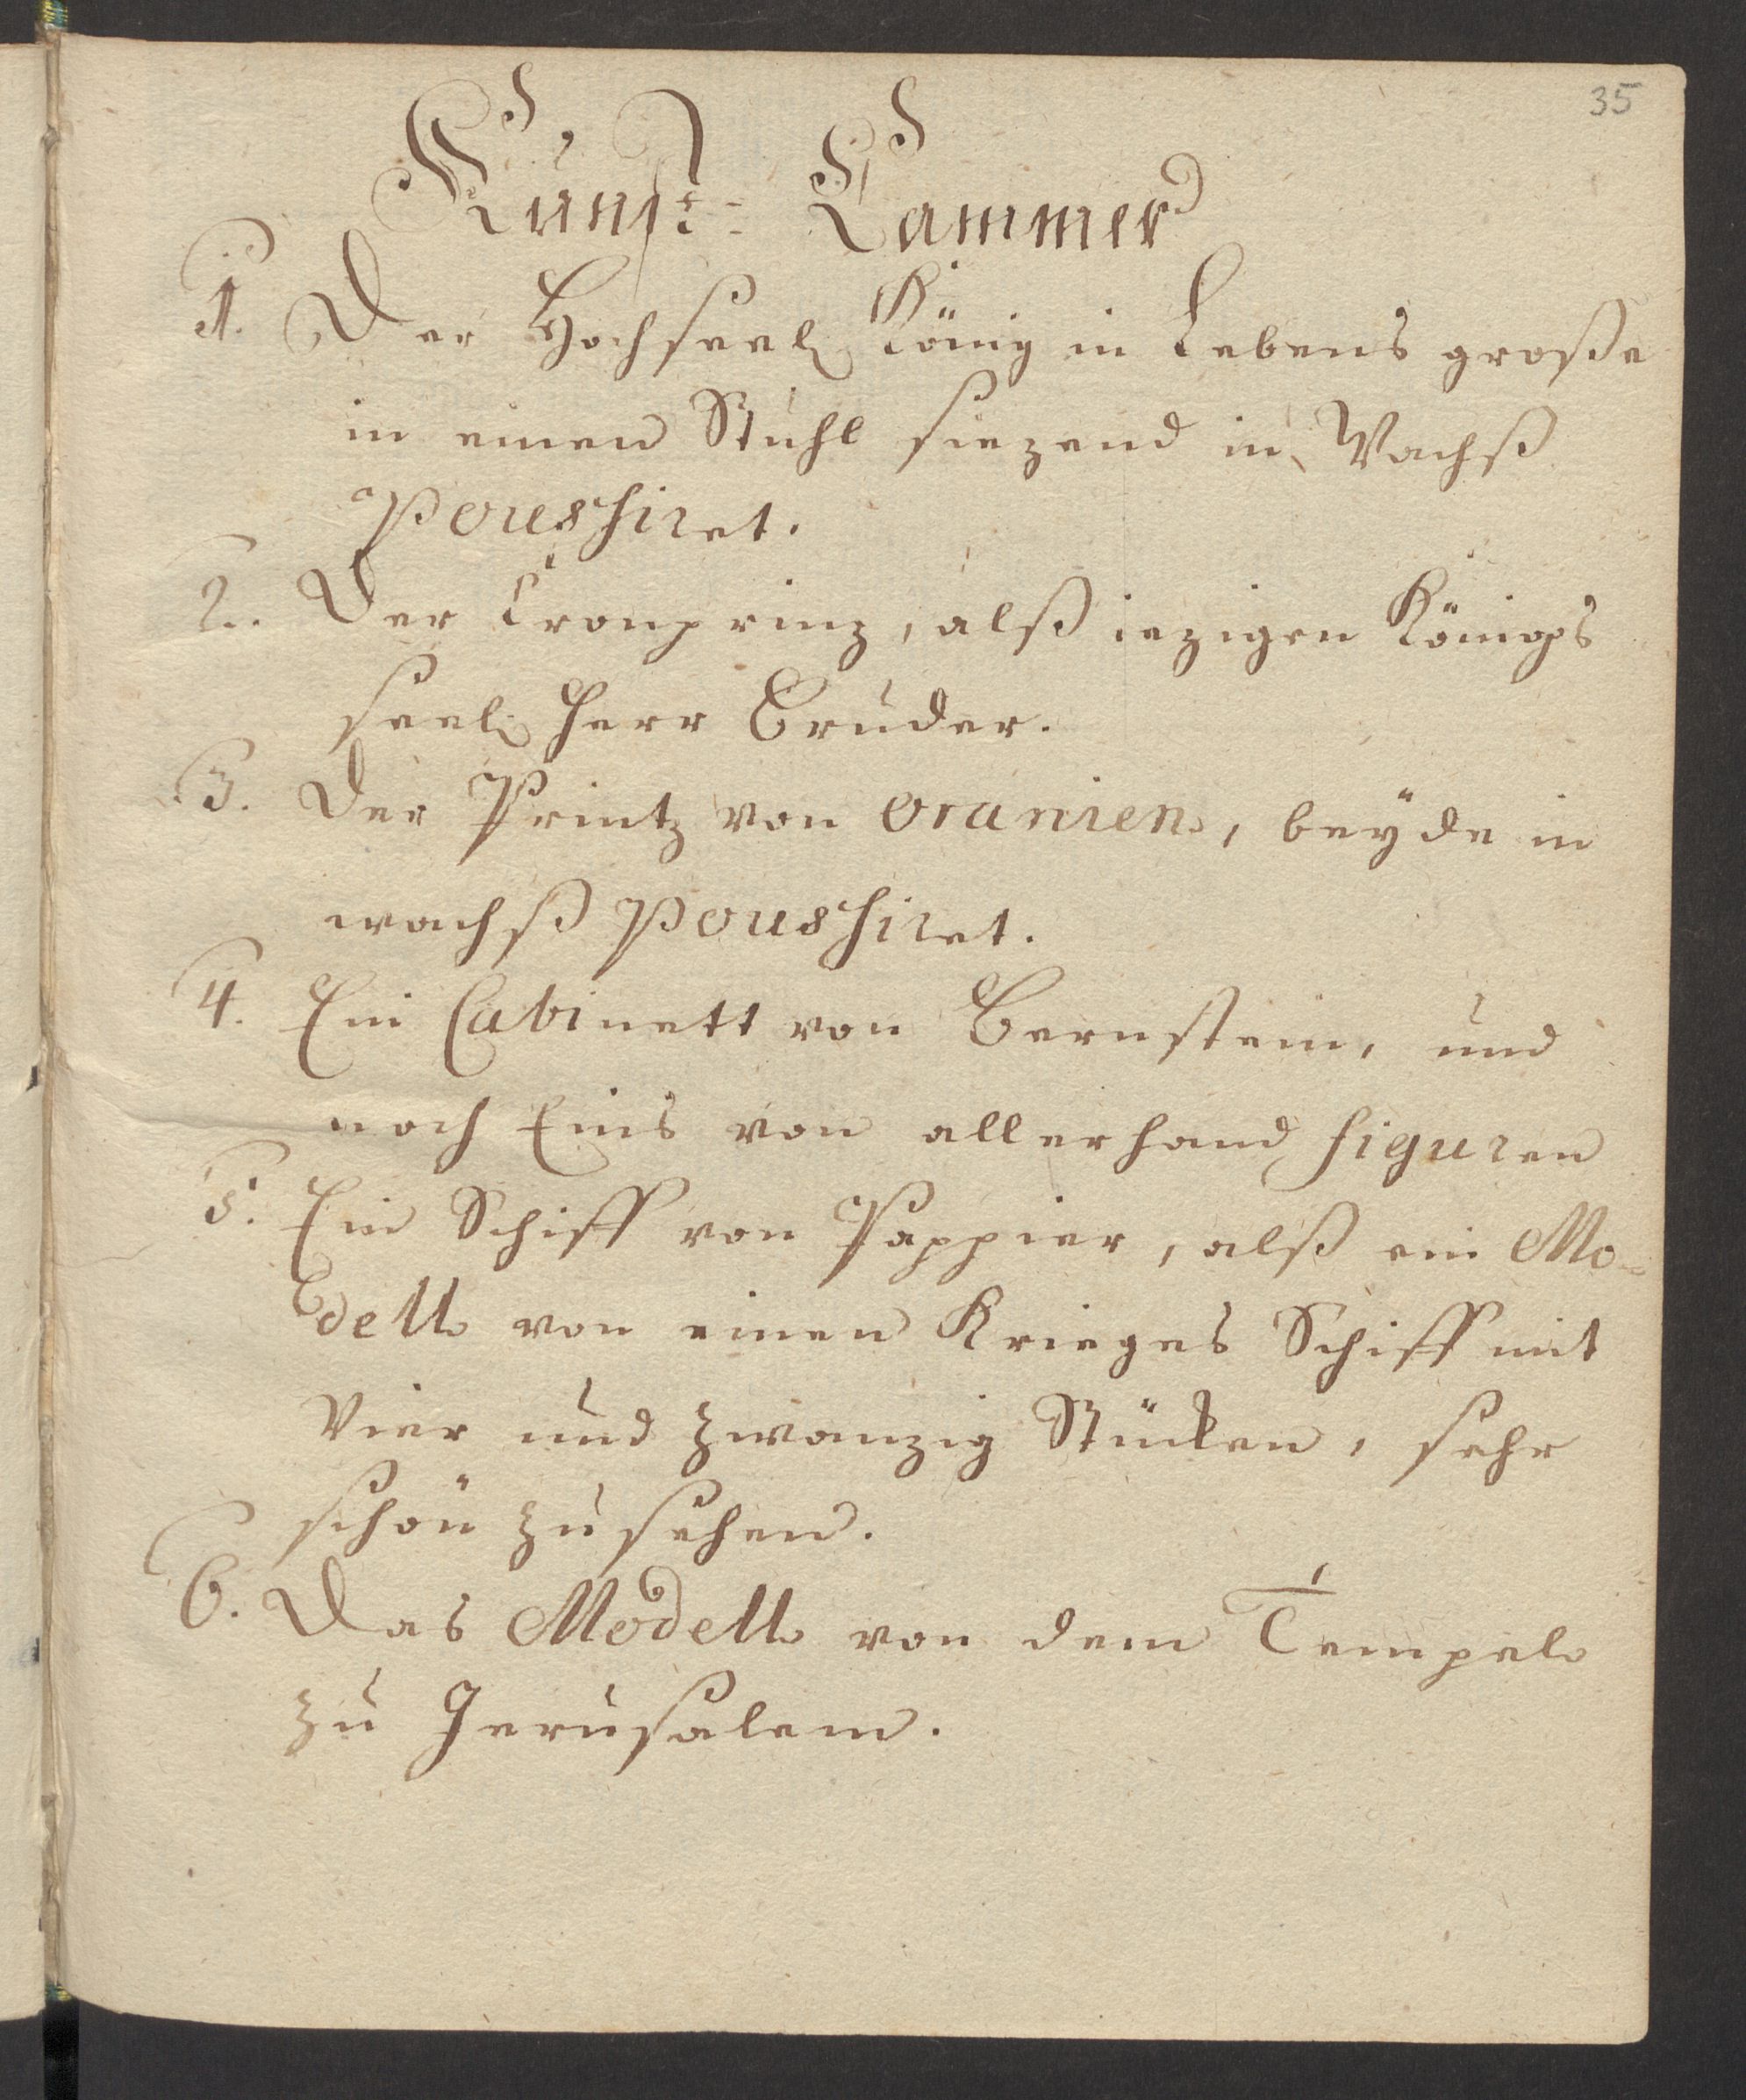 35
Kunst- Cammer
1. Der Hochseel. König in Lebens große
in einen Stuhl siezend in Wachß
Poussiret.
2. Der Cronprinz, alß iezigen Königs
seel. Herr Bruder.
3. Der Printz von Oranien, beÿde in
wachß Poussiret.
4. Ein Cabinett von Bernstein, und
noch Eins von allerhand figuren
5. Ein Schiff von Pappier, alß ein Mo-
dell von einen Krieges Schiff mit
Vier und zwanzig Stücken, sehr
schön zu sehen.
6. Das Modell von dem Tempel
zu Jerusalem.